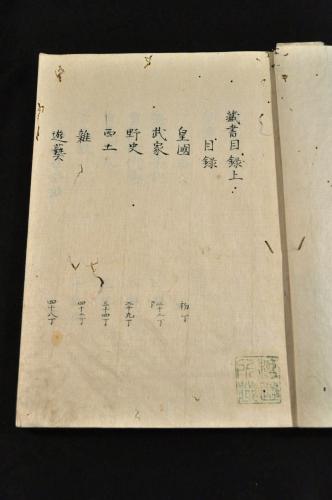 藏書目録上
目録
皇國 初丁
武家 二十二丁
野史 三十九丁
西土 三十四丁
雜 四十二丁
遊藝 四十八丁